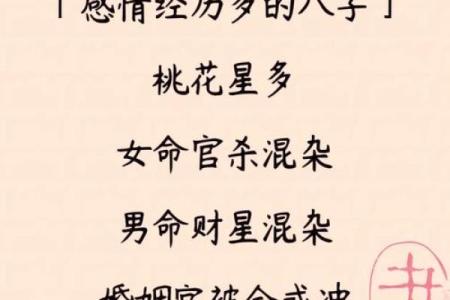 「感情经历多的八字」
桃花星多
女命官杀混杂
男命财星混杂
婚姻宫被合或冲